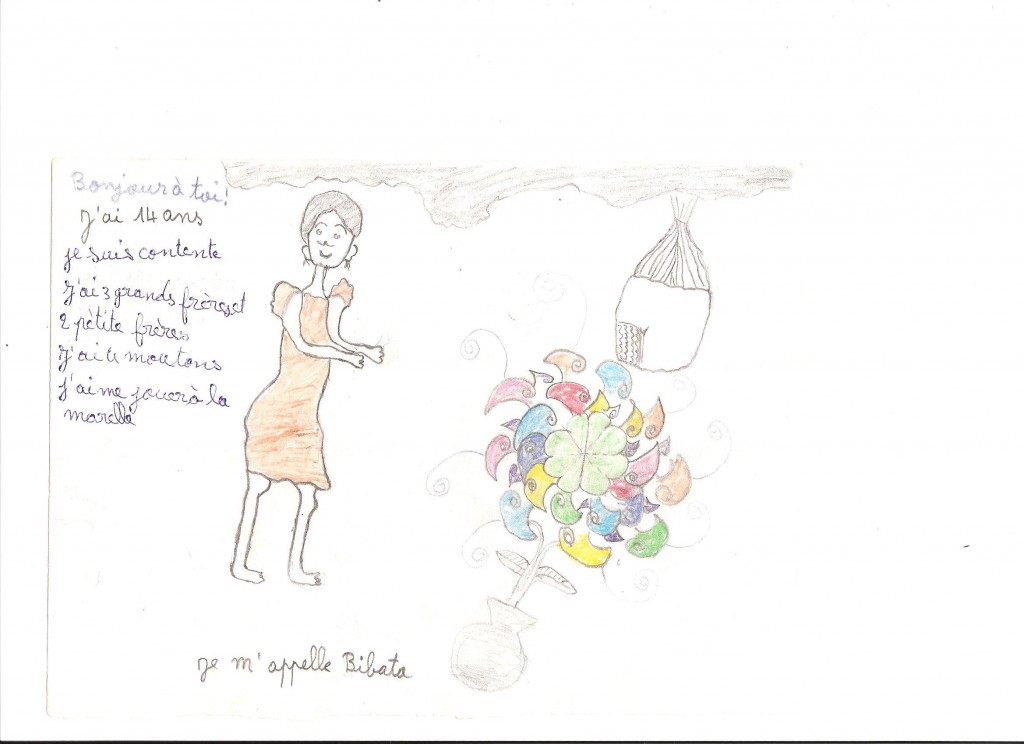 Bonjour à toi!
J'ai 14 ans
je suis contente
J'ai 3 grands frères et
2 pètits frères
J'ai 4 moutons
j'aime jouer à la
marelle
Je m'appelle Bibata